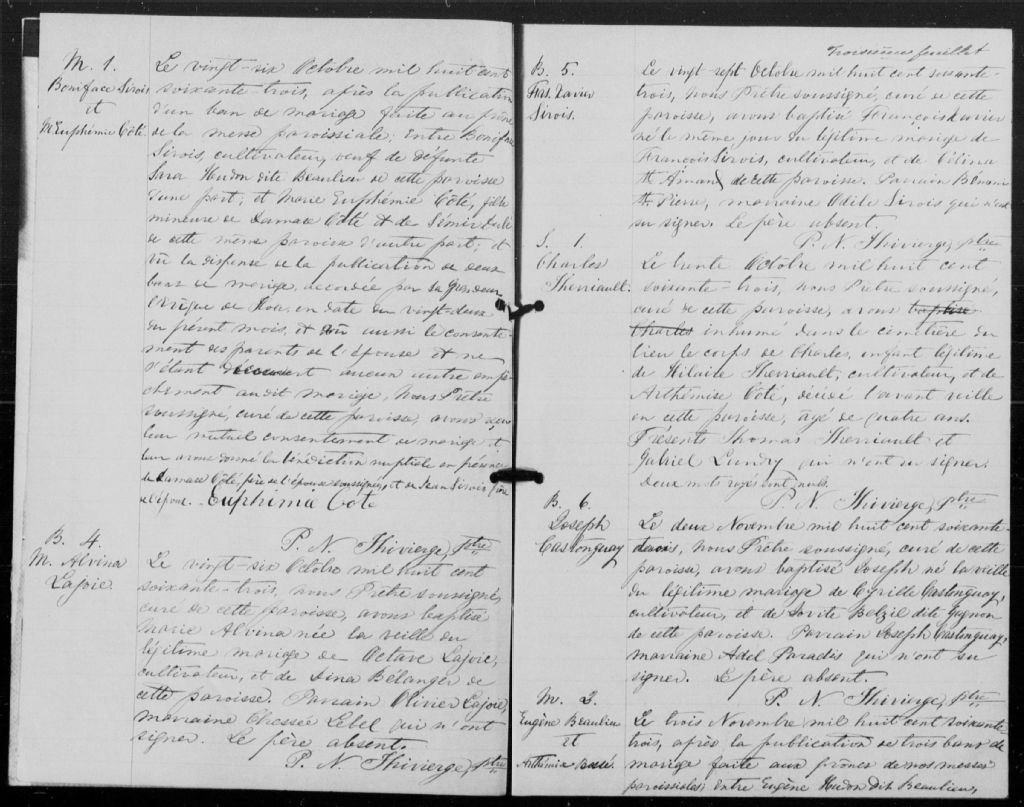 M. 1.
Boniface Sirois
et
M Euphémie Côté.
Le vingt-six Octobre mil huit cent
soixante-trois, après la publication
d'un ban de mariage faite au prône
de la messe paroissiale, entre Boniface
Sirois, cultivateur, veuf de défunte
Sara Hudon dite Beaulieu de cette paroisse
d'une part; et Marie Euphémie Côté, fille
mineure de Damase Côté & de
de cette même paroisse d'autre part; et
vu la dispense de la publication de deux
bans de mariage, accordée par Sa Grandeur
en date du vingt-deux
du présent mois, et vu aussi le consente-
ment des parents de l'épouse et ne
s'étant découvert aucun autre empê-
chement au dit mariage, Nous Prêtre
soussigné, curé de cette paroisse, avons reçu
leur mutuel consentement de mariage et
leur avons donné la bénédiction nuptiale en présence
de Damase Côté, père de l'épouse soussignée, et de Jean Sirois frère
de l'époux. Euphimia Cote
P. N. Thivierge, ptre
B. 4.
M. Alvina
Lajoie.
Le vingt-six Octobre mil huit cent
soixante-trois, nous Prêtre soussigné,
curé de cette paroisse, avons baptisé
Marie Alvina née la veille du
légitime mariage de Octave Lajoie,
cultivateur, et de Dina Bélanger de
cette paroisse. Parrain Olivier Lajoie,
marraine Lebel qui n'ont
signer. Le père absent.
P. N. Thivierge, ptre
Troisième feuillet
B. 5.
Frs. Xavier
Sirois.
Le vingt-sept Octobre mil huit cent soixante-
trois, Nous Prêtre soussigné, curé de cette
paroisse, avons baptisé François Xavier
né le même jour du légitime mariage de
François Sirois, cultivateur, et de Célina
St Amand de cette paroisse. Parrain Bénoni
St Pierre, marraine Odile Sirois qui n'ont
su signer. Le père absent.
P. N. Thivierge, ptre
S. 1.
Charles
Therriault.
Le trente Octobre mil huit cent
soixante-trois, nous Prêtre soussigné,
curé de cette paroisse, avons baptisé
Charles inhumé dans le cimetière du
lieu le corps de Charles, enfant légitime
de Hilaire Therriault, cultivateur, et de
Arthémise Côté, décédé l'avant veille
en cette paroisse, agé de quatre ans.
Présents Thomas Therriault et
Gabriel Landry qui n'ont su signer.
Deux mots rayés sont nuls.
P. N. Thivierge, Ptre
B. 6.
Joseph
Castonguay
Le deux Novembre mil huit cent soixante-
trois, Nous Prêtre soussigné, curé de cette
paroisse, avons baptisé Joseph né la veille
du légitime mariage de Cyrille Castonguay,
cultivateur, et de Sovite Belzil dit Gagnon
de cette paroisse. Parrain Joseph Castonguay,
marraine Adel Paradis qui n'ont su
signer. Le père absent.
P. N. Thivierge, ptre
M. 2.
Eugène Beaulieu
et
Arthémise
Le trois Novembre mil huit cent soixante
trois, après la publication de trois bans de
mariage faite aux prônes de nos messes
paroissiales, entre Eugène Hudon dit Beaulieu,